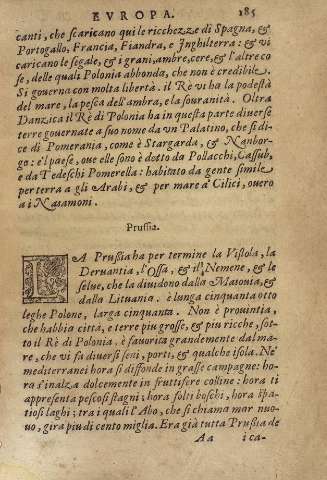 EVROPA. 185
canti, che scaricano qui le ricchezze di Spagna, &
Portogallo, Francia, Fiandra, e Inghilterra: & vi
caricano le segale, & i grani, ambre, cere, & l'altre co
se, delle quali Polonia abbonda, che non è credibile.
Si gouerna con molta libertà. il Rè vi ha la podestà
del mare, la pesca dell'ambra, e la souranità. Oltra
Danzica il Rè di Polonia ha in questa parte diuerse
terre gouernate a suo nome da vn Palatino, che si di-
ce di Pomerania, come è Stargarda, & Nanbor-
go: e'l paese, oue elle sono è detto da Pollacchi, Cassub,
e da Tedeschi Pomerella: habitato da gente simile
per terra a gli Arabi, & per mare a' Cilici, ouero
a i Nasamoni.
Prussia.
LA Prussia ha per termine la Vistola, la
Deruantia, l'Ossa, & il Nemene, & le
selue, che la diuidono dalla Masouia, &
dalla Lituania. è lunga cinquanta otto
leghe Polone, larga cinquanta. Non è prouintia,
che habbia città, e terre piu grosse, & piu ricche, sot-
to il Rè di Polonia. è fauorita grandemente dal ma-
re, che vi fa diuersi seni, porti, & qualche isola. Ne'
mediterranei hora si diffonde in grasse campagne: ho-
ra s'inalza dolcemente in fruttifere colline: hora ti
appresenta pescosi stagni; hora folti boschi, hora spa-
tiosi laghi; tra i quali l'Abo, che si chiama mar nuo-
uo, gira piu di cento miglia. Era già tutta Prussia de
Aa ica-